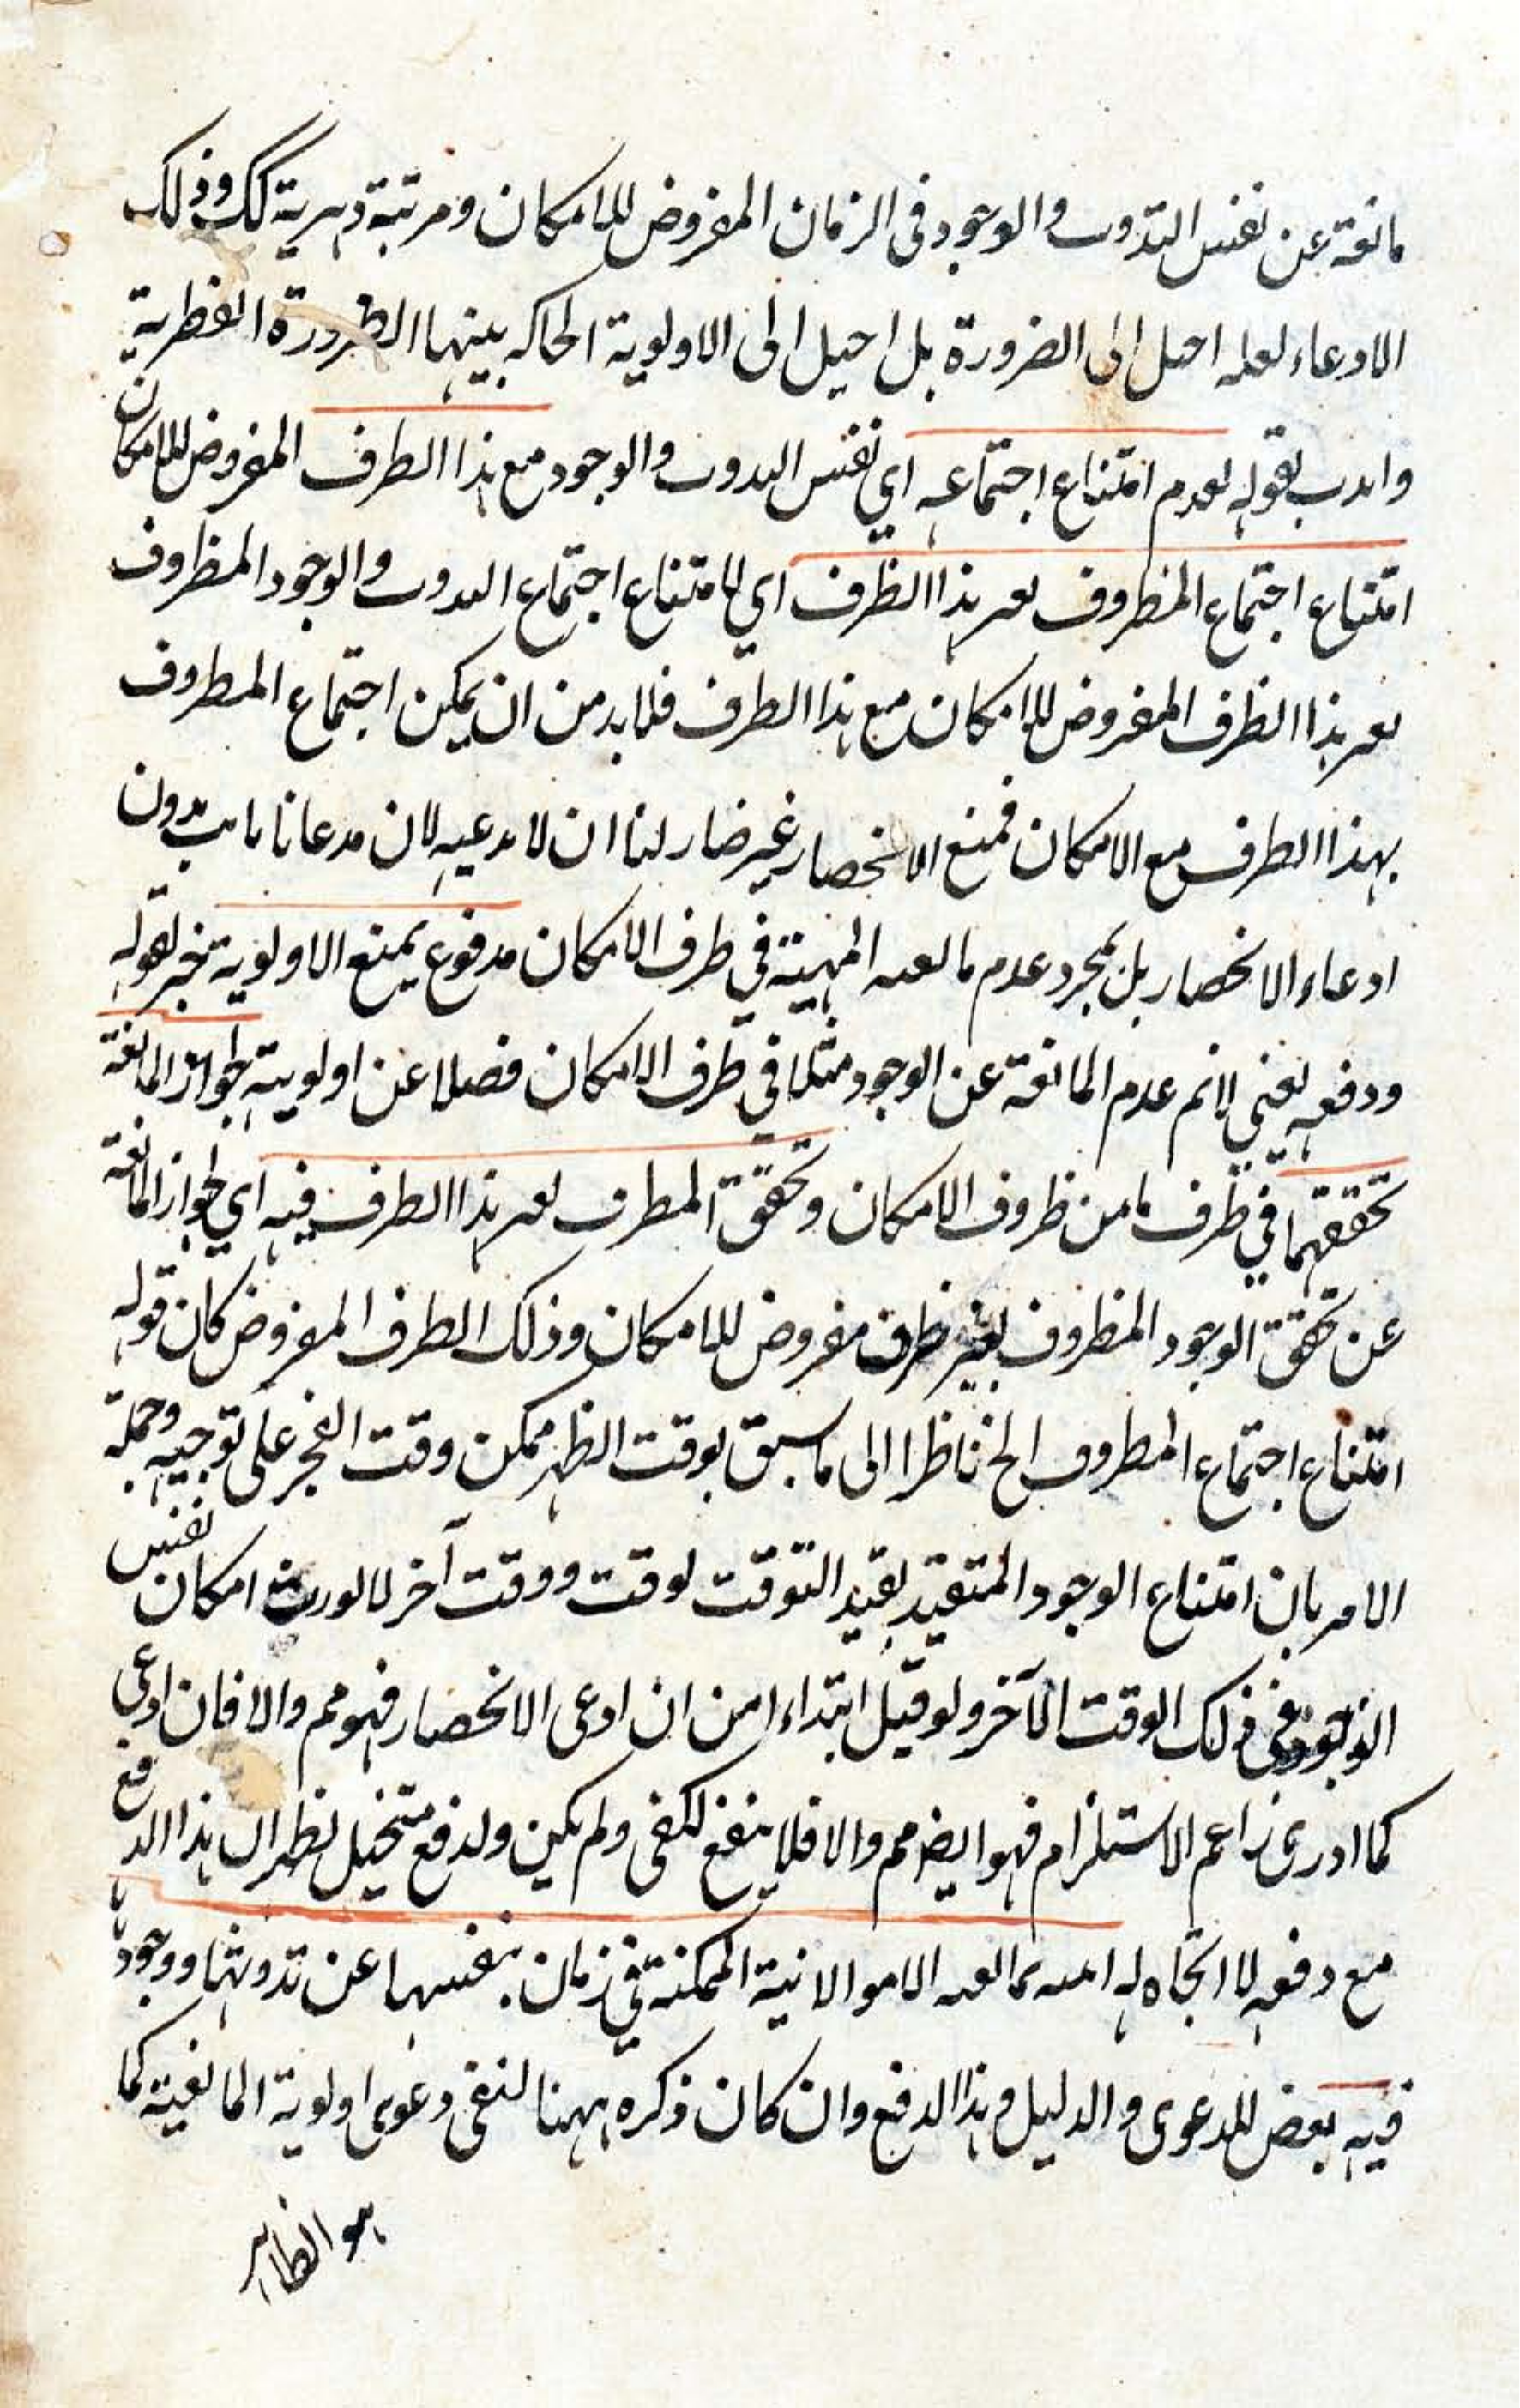 مانعة عن نفس التدوث والوجود فى الزمان المفروض للامكان ومرتبة دهرية كك وذلك
الادعاء لعله احيل الى الضرورة بل احيل الى الاولوية الحاكه بينهما الضرورة الفطرية
وايدت بقوله لعدم امتناع اجتماعه اي نفس الحدوث والوجود مع هذا الطرف المفروض للامكان
امتناع اجتماع المظروف بغير هذا الظرف اي لامتناع اجتماع الحدوث والوجود المظروف
بغير هذا الظرف المفروض للامكان مع هذا الظرف فلابد من ان يمكن اجتماع المظروف
بهذا الظرف مع الامكان فمنع الانحصار غير ضار لنا ان لا ندعيه لان مدعانا ثابت بدون
ادعاء الانحصار بل بمجرد عدم مانعية المهية في ظرف الامكان مدفوع بمنع الاولوية خبر لقوله
ودفعه يعني لانم عدم المانعة عن الوجود مثلا في ظرف الامكان فضلا عن اولويته لجواز المانعة
تحققهما في ظرف ما من ظروف الامكان وتحقق المظروف بغير هذا الظرف فيه اي لجواز المانعة
عن تحقق الوجود المظروف بغير ظرف مفروض للامكان وذلك الظرف المفروض كان قوله
امتناع اجتماع المظروف الخ ناظرا الى ما سبق بوقت الظهر ممكن وقت الفجر على توجيه وجملة
الامر بان امتناع الوجود المتقيد بقيد التوقت لوقت ووقت آخر لا يورث امكان نفس
الوجود في ذلك الوقت الآخر ولو قيل ابتداء امن ان ادعى الانحصار فهو مم والا فان ادعى
كما ادرى زاعم الاستلزام فهو ايضا مم والا فلا ينفع لكفى ولم يكن ولدفع متخيل نظر الى هذا الدفع
مع دفعه لا اتجاه له امتنه مانعية الامو الانية الممكنة في زمان بنفسها عن تدوثها ووجودها
فيه بعض للدعوى والدليل وهذا الدفع وان كان ذكره ههنا لنفى دعوى اولوية المانعية كما
هو الظاهر